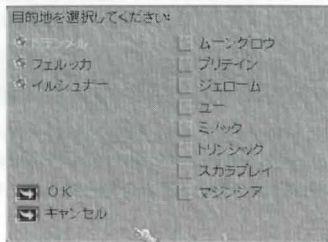 目的地を選択してください:
トランメル
フェルッカ
イルシュナー
ムーングロウ
ブリテイン
ジェローム
ユー
ミノック
トリンシック
スカラブレイ
マジンシア
OK
キャンセル